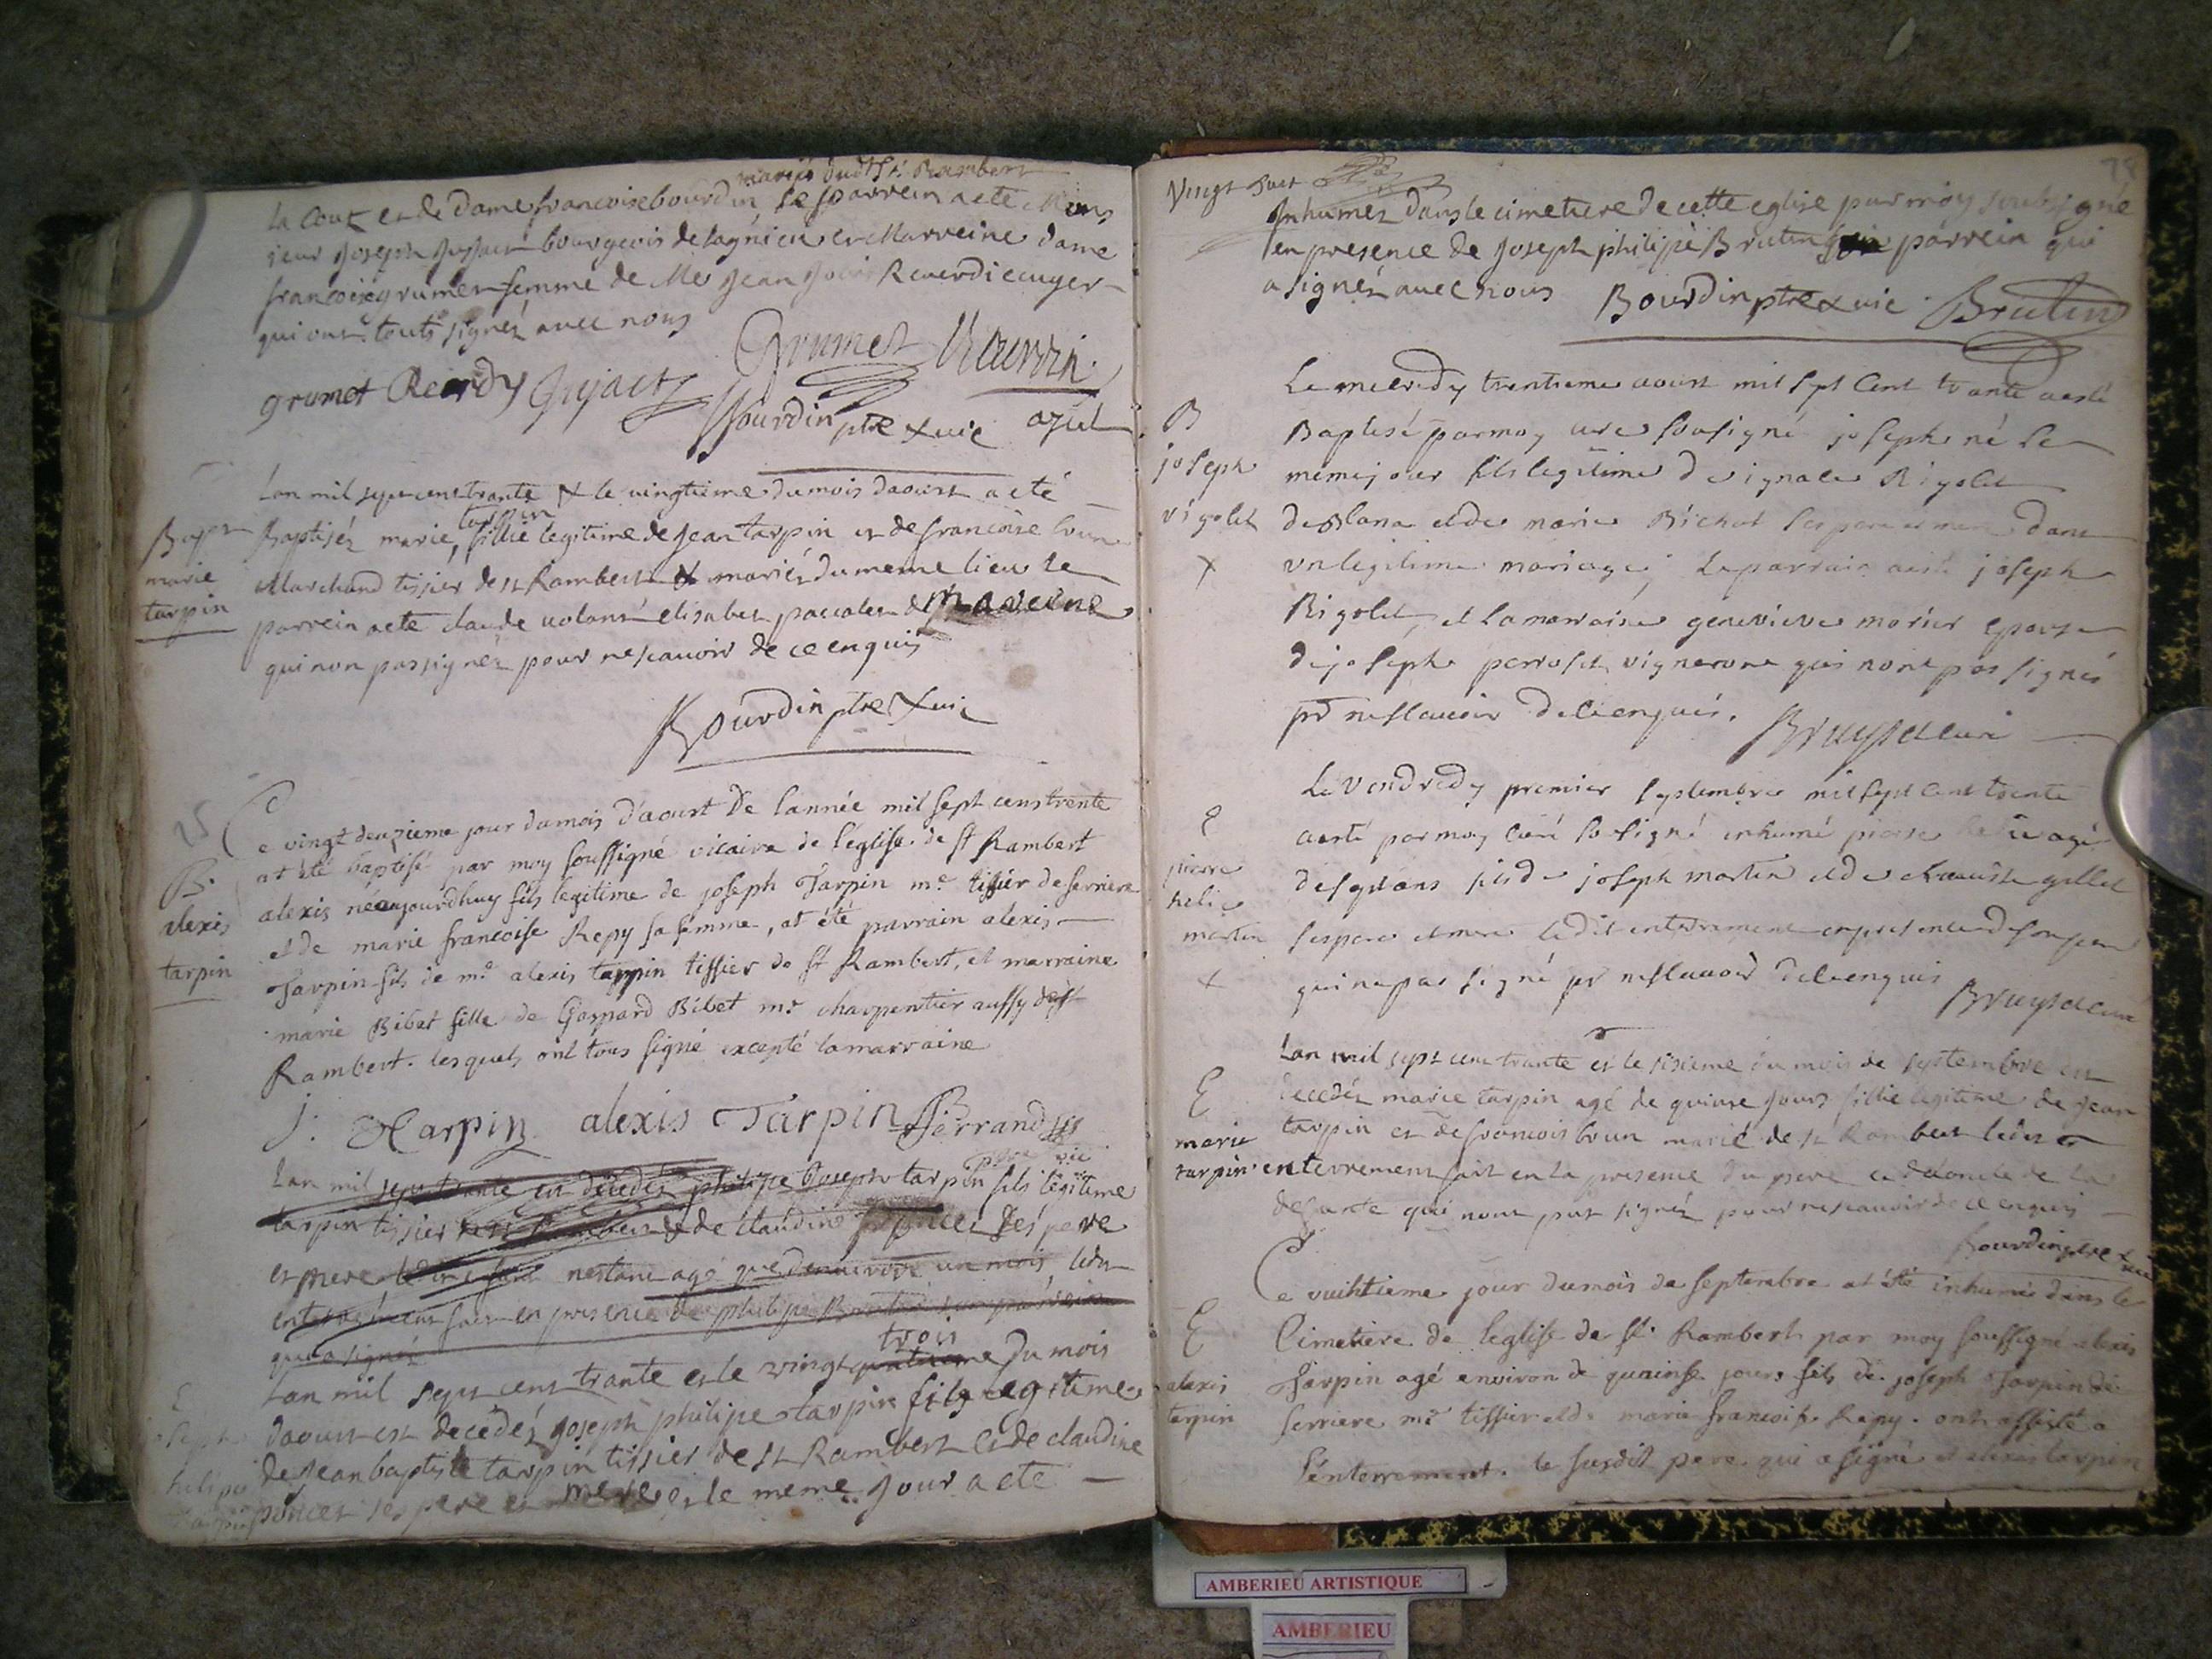 mariés dudt St Rambert
la Cour et de dame francoise bourdin, le parrein a ete Mons
ieur Joseph Jujact bourgeois de lagnieu et Marreine dame
francoise grumet femme de Me Jean Louis Reverdi ecuyer
qui ont touts signéz avec nous
Grumet
grumet Reverdy Jujact
Bourdin ptre & vic
Lan mil sept cent trante & le vingtieme du mois daoust a eté
tarpin
Baptisez marie, fillie legitime de Jean tarpin et de francoise brun
Marchand tissier de st Rambert & mariéz du meme lieu le
parrein a ete claude volant elisabet paccalet & Mareine
qui non pas signéz pour ne scavoir de ce enquis
Bapt
marie
tarpin
Bourdin ptre & vic
25
Ce vingt deuzieme jour du mois d'aoust De l'année mil sept cens trente
at été baptisé par moy soussigné vicaire de l'église de st Rambert
alexis né aujourdhuy fils legitime de joseph Tarpin me tissier de serriere
et de marie francoise Repy sa femme, at été parrain alexis
Tarpin fils de me alexis tarpin tissier de st Rambert, et marraine
marie Bibet fille de Gaspard Bibet me charpentier aussy de st
Rambert. lesquels ont tous signé excepté la marraine
B.
alexis
tarpin
J. Tarpin alexis Tarpin Ferrand
ptre vic
Lan mil sept trante est décedéz philipe Joseph tarpin fils legitime
tarpin tissier de st Rambert & de claudine poncet ses pere
et mere ledit enfant nestant agé que denviron un mois ledit
enterrement fait en presence de philipe Brutin son parrein
qui a signé
trois
Lan mil sept cent trante et le vingt quatrieme du mois
daoust est decedéz joseph philipe tarpin fils legitime
de Jean baptiste tarpin tissier de st Rambert et de claudine
poncet ses pere et mere et le meme jour a ete
E
78
Vingt huit
Inhumez dans le cimetiere de cette eglise par moy soubsigné
en presence de Joseph philipe Brutin parrein qui
a signéz avec nous Bourdin ptre & vic Brutin
Le mecredy trentieme aoust mil sept Cent trante aesté
Baptisé par moy curé sousigné joseph né le
meme jour fils legitime de ignace Rigolet
de Blana et de marie Bichat ses pere et mere dans
un legitime mariage, le parrain aesté joseph
Rigolet, et la marraine genevieve morier epouse
de joseph perroset vignerons qui nont pas signés
pr ne scavoir de ce enquis. Bruyset curé
B
joseph
rigolet
x
Le Vendredy premier septembre mil sept Cent trente
aesté par moy curé sousigné inhumé pierre helie agé
de sept ans fils de joseph martin et de claudine gillet
ses pere et mere le dit enterrement en presence de son pere
qui na pas signé pr ne scavoir de ce enquis
Bruyset curé
E
pierre
helie
martin
x
Lan mil sept cent trante et le sisieme du mois de septembre est
decedéz marie tarpin agé de quinse jours fillie legitime de Jean
tarpin et de francoise brun marié de st Rambert ledit
enterrement fait en la presence du pere et de loncle de la
defunte qui nont put signéz pour ne scavoir de ce enquis
Bourdin ptre & vic
E
marie
tarpin
Ce vuihtieme jour du mois de septembre at été inhumé dans le
Cimetiere de l'eglise de st. Rambert par moy soussigné alexis
Tarpin agé environ de quainse jours fils de joseph Tarpin de
serriere me tissier et de marie francoise Repy. ont assisté a
l'enterrement. le susdit pere qui a signé et alexis tarpin
E
alexis
tarpin
AMBERIEU ARTISTIQUE
AMBERIEU